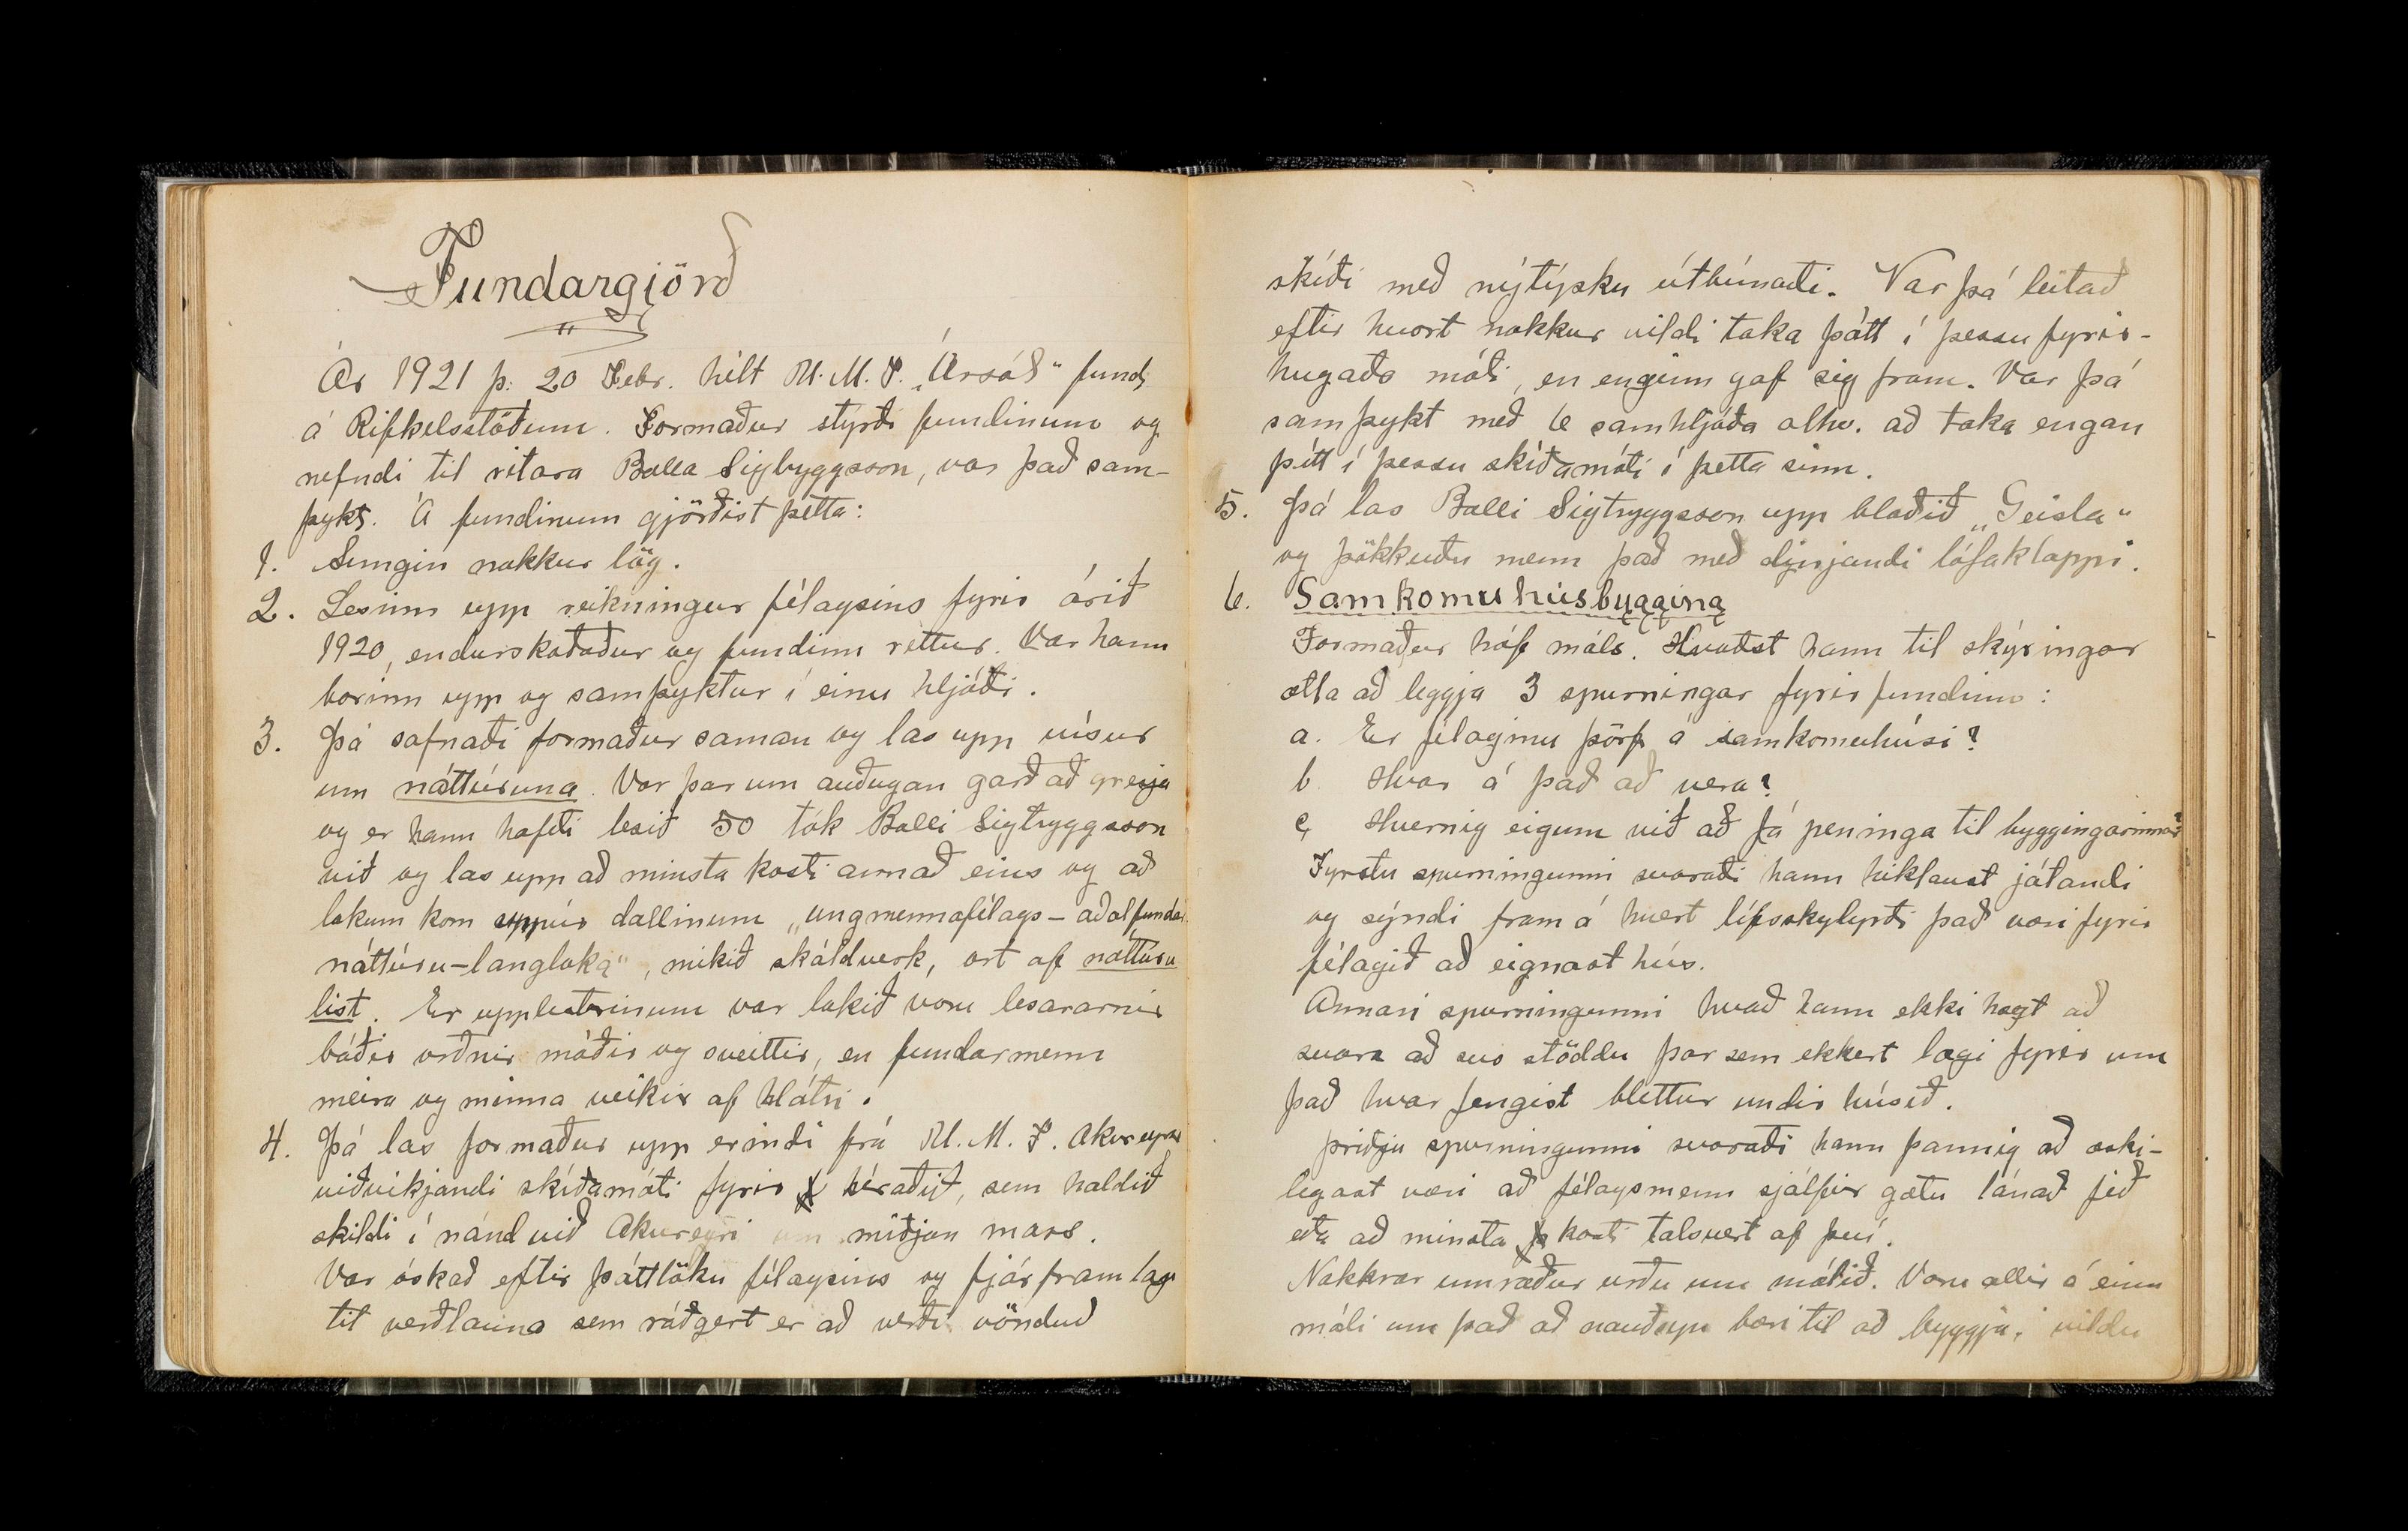 Fundargjörð
Ár 1921 þ: 20 Febr. hélt U. M. F. „Ársól" fund
á Rifkelsstöðum. Formaður stýrði fundinum og
nefndi til ritara Balla Sigtryggsson, var það sam-
þykt. Á fundinum gjörðist þetta:
1. Sungin nokkur lög.
2. Lesinn upp reikningur félagsins fyrir árið
1920, endurskoðaður og fundinn réttur. Var hann
borinn upp og samþyktur í einu hljóði.
3. Þá safnaði formaður saman og las upp vísur
um náttúruna. Var þar um auðugan garð að gresja
og er hann hafði lesið 50 tók Balli Sigtryggsson
við og las upp að minsta kosti annað eins og að
lokum kom uppúr dallinum „ungmennafélags- aðalfundar
náttúru-langloka", mikið skáldverk, ort af náttúru
list. Er upplestrinum var lokið voru lesararnir
báðir orðnir móðir og sveittir, en fundarmenn
meira og minna veikir af hlátri.
4. Þá las formaður upp erindi frá U. M. F. Akureyrar
viðvíkjandi skíðamóti fyrir héraðið, sem haldið
skildi í nánd við Akureyri um miðjan mars.
Var óskað eftir þátttöku félagsins og fjárframlagi
til verðlauna sem ráðgert er að verði vönduð
skíði með nýtýsku útbúnaði. Var þá leitað
eftir hvort nokkur vildi taka þátt í þessu fyrir-
hugaða móti, en enginn gaf sig fram. Var þá
samþykt með 6 samhljóða atkv. að taka engan
þátt í þessu skíðamóti í þetta sinn.
5. Þá las Balli Sigtryggsson upp blaðið „Geisla"
og þökkuðu menn það með dynjandi lófaklappi.
6. Samkomuhúsbygging
Formaður hóf máls. Hvaðst hann til skýringar
ætla að leggja 3 spurningar fyrir fundinn:
a. Er félaginu þörf á samkomuhúsi?
b. Hvar á það að vera?
c. Hvernig eigum við að fá peninga til byggingarinnar?
Fyrstu spurningunni svaraði hann hiklaust játandi
og sýndi fram á hvert lífsskylyrði það væri fyrir
félagið að eignast hús.
Annari spurningunni hvað hann ekki hægt að
svara að svo stöddu þar sem ekkert lægi fyrir um
það hvar fengist blettur undir húsið.
þriðju spurningunni svaraði hann þannig að æski-
legast væri að félagsmenn sjálfir gætu lánað féð
eða að minsta kosti talsvert af því.
Nokkrar umræður urðu um málið. Voru allir á einu
máli um það að nauðsyn bæri til að byggja, vildu